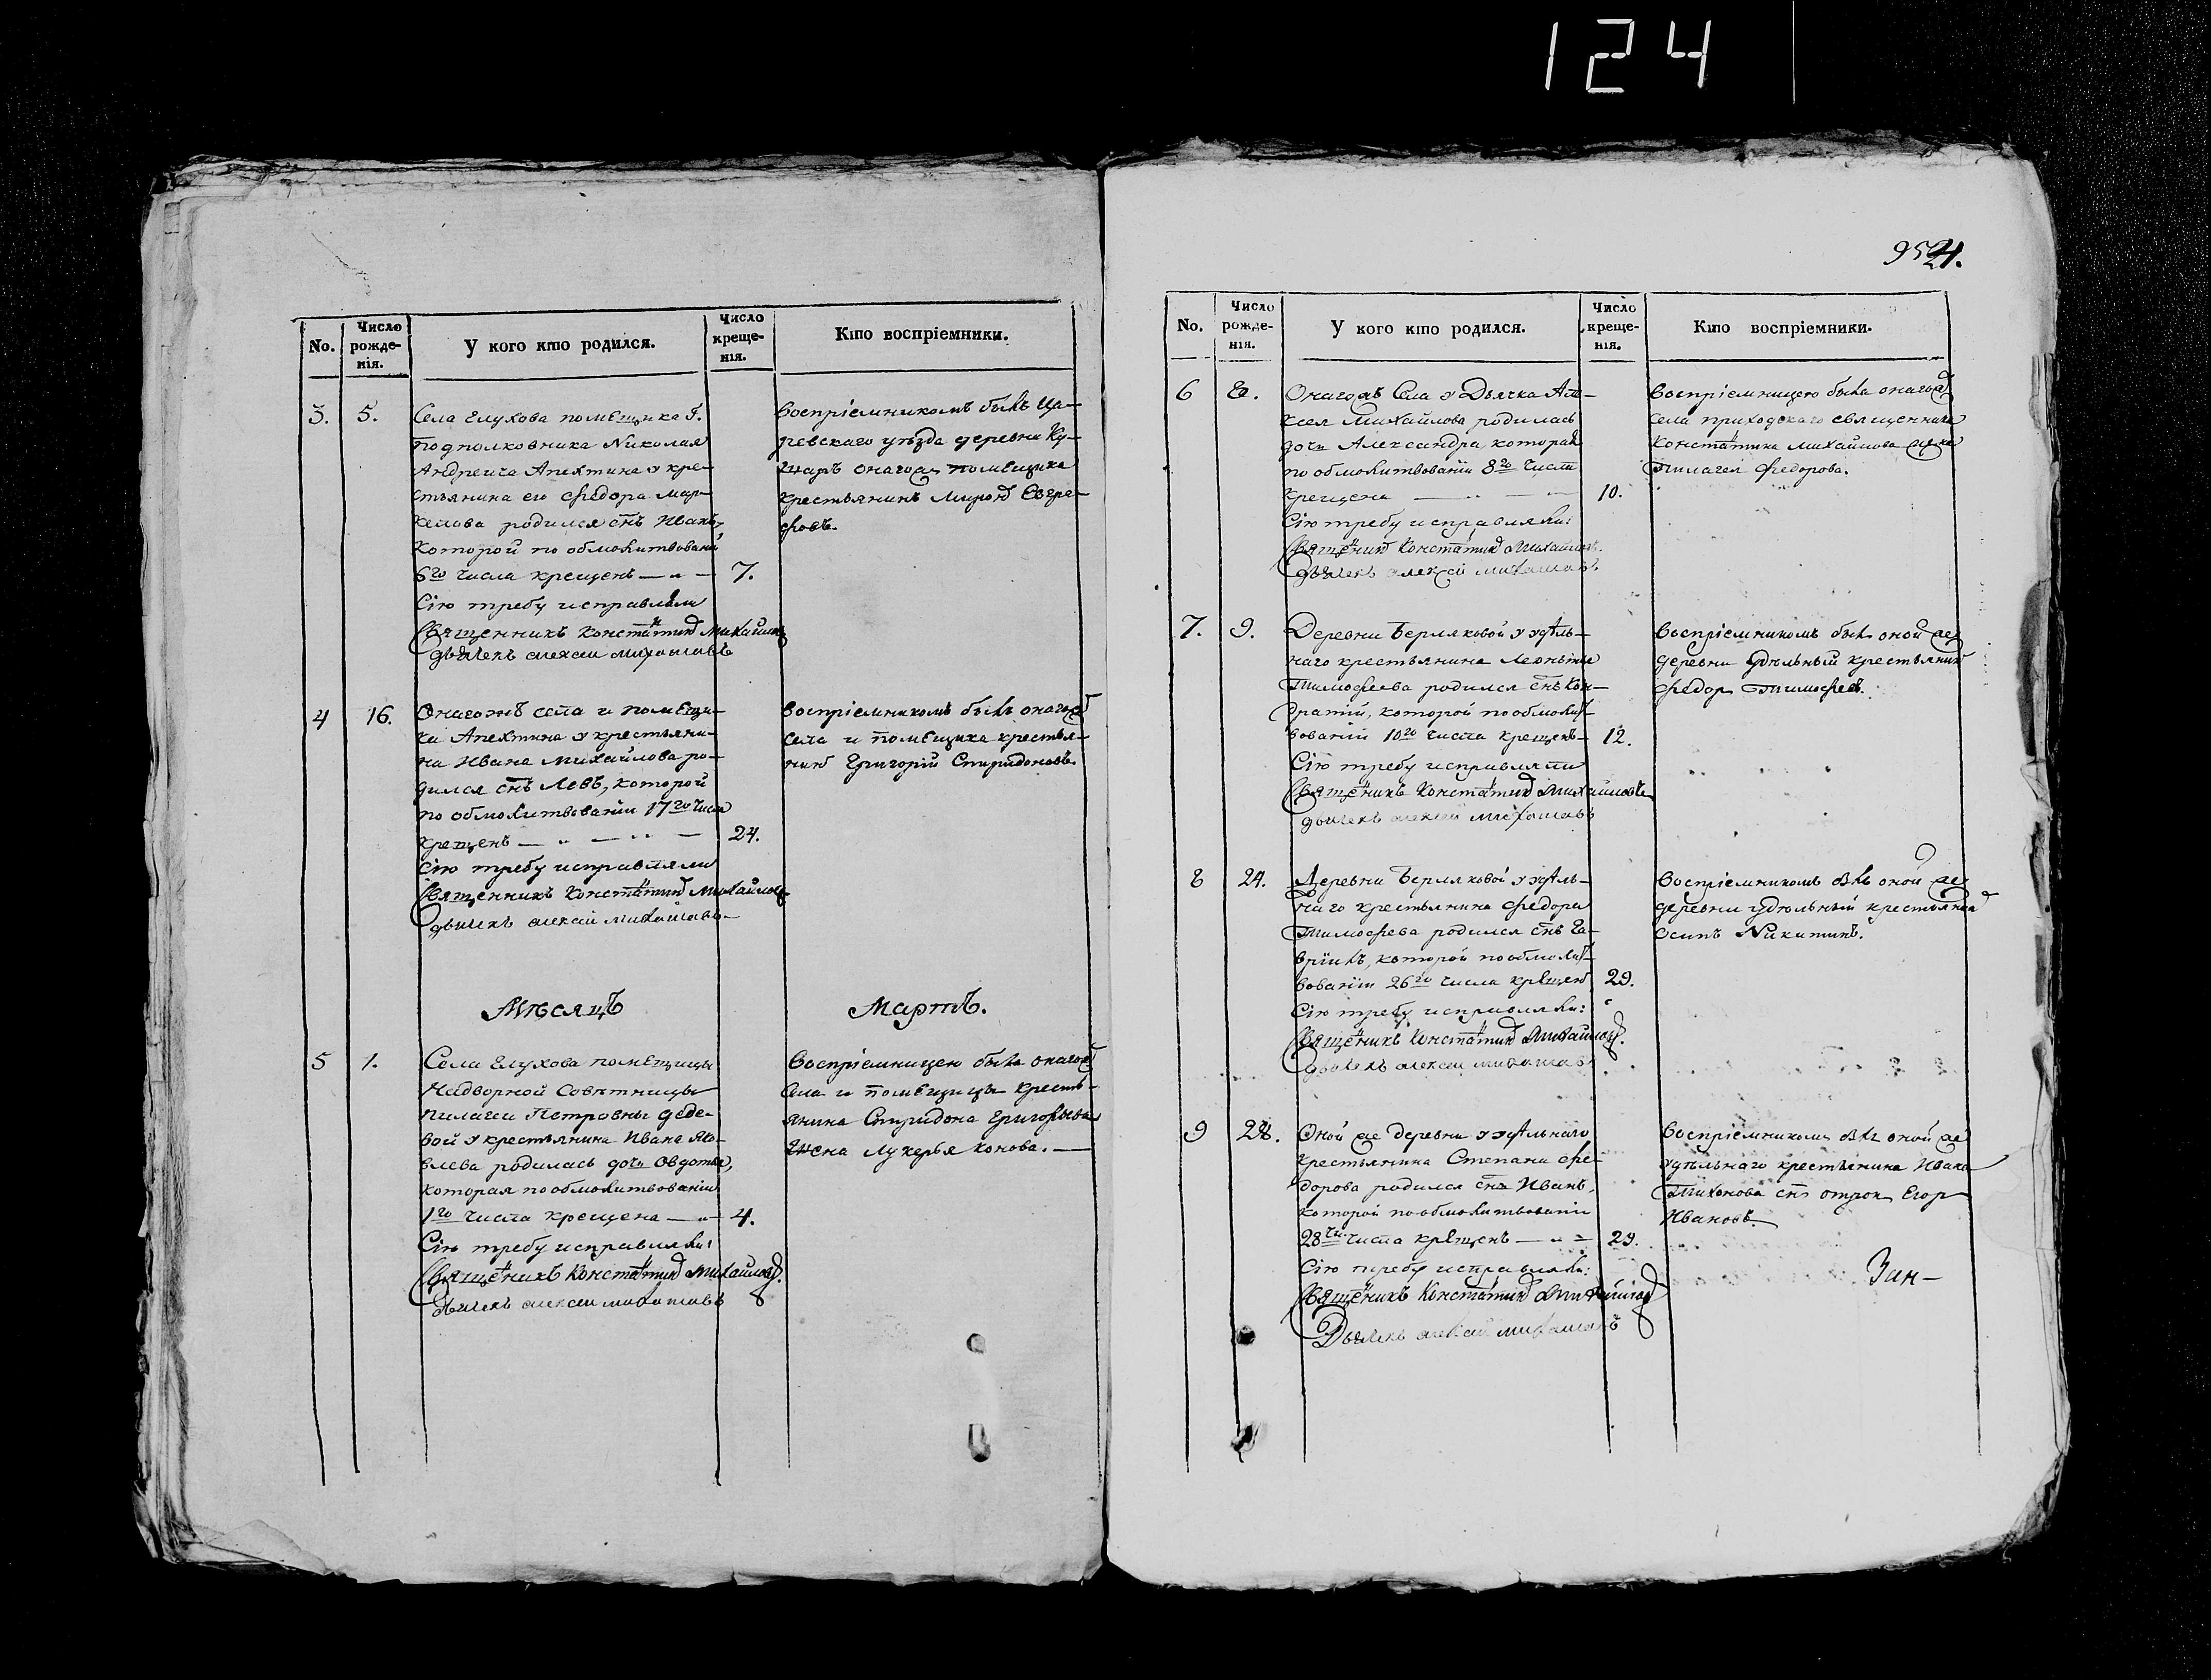 124
No.
Число рожде-нія.
У кого кто родился.
Число креще-нія.
Кто воспріемники.
3. 5.
Села Елухова помѣщика Г.
Подполковника Николая
Андреича Апехтина у кре-
стьянина его Федора Мар-
келова родился снъ Иванъ,
которой по обмолитвованіи
6го числа крещенъ — „ — 7.
Сію требу исправляли
Священникъ Константинъ Михайловъ
дьячекъ алексеи михаиловъ
Воспріемникомъ былъ Ца-
ревскаго уѣзда деревни Ку-
онагожъ помѣщика
крестьянинъ Миронъ
4 16.
Онагожъ села и помѣщи-
ка Апехтина у крестьяни-
на Ивана Михайлова ро-
дился снъ Левъ, которой
по обмолитвованіи 17го числа
крещенъ — „ — „ — 24.
Сію требу исправляли
Священникъ Константинъ Михайловъ
дьячекъ алексій михаиловъ
Воспріемникомъ былъ онагожъ
села и помѣщика крестья-
нинъ Григорій Спиридоновъ.
Мѣсяцъ Мартъ.
5 1.
Села Елухова помѣщицы
Надворной Совѣтницы
Пилагеи Петровны Деде-
вой у крестьянина Ивана Яко-
влева родилась дочь Овдотья,
которая по обмолитвованіи
1го числа крещена — „ — 4.
Сію требу исправляли:
Священикъ Константинъ Михайловъ.
дьячекъ алексеи михаиловъ
Воспріемницею была онагожъ
села и помѣщицы кресть-
янина Спиридона Григорьева
жена Лукерья Конова. —
954.
No.
Число рожде-нія.
У кого кто родился.
Число креще-нія.
Кто воспріемники.
6 8.
Онагожъ Села у Дьячка Але-
ксея Михайлова родилась
дочь Александра, которая
по обмолитвованіи 8го числа
крещена — „ — 10.
Сію требу исправляли:
Священикъ Константинъ Михайловъ.
дьячекъ алексій михаиловъ.
Воспріемницею была онагожъ
села приходскаго священника
Константина Михайлова жена
Пилагея Федорова.
7. 9.
Деревни Берляковой у удѣль-
наго крестьянина Леонтія
Тимофеева родился снъ Кон-
дратій, которой по обмолит-
вованіи 10го числа крещенъ — 12.
Сію требу исправляли
Священикъ Константинъ Михайловъ
дьячекъ алексеи михаиловъ
Воспріемникомъ былъ оной же
деревни удѣльный крестьянинъ
Федоръ Тимофеевъ.
8 24.
Деревни Берляковой у удѣль-
наго крестьянина Федора
Тимофеева родился снъ Га-
вріилъ, которой по обмолит-
вованіи 26го числа крещенъ 29.
Сію требу исправляли:
Священикъ Константинъ Михайловъ.
дьячекъ алексеи михаиловъ
Воспріемникомъ былъ оной же
деревни удѣльный крестьянинъ
Осипъ Никитинъ.
9 28.
Оной же деревни у удѣльнаго
крестьянина Степана Фе-
дорова родился снъ Иванъ,
которой по обмолитвованіи
28го числа крещенъ — „ — 29.
Сію требу исправляли:
Священикъ Константинъ Михайловъ
Дьячекъ алексій михаиловъ
Воспріемникомъ былъ оной же
удѣльнаго крестьянина Ивана
Тихонова снъ отрокъ Егоръ
Ивановъ.